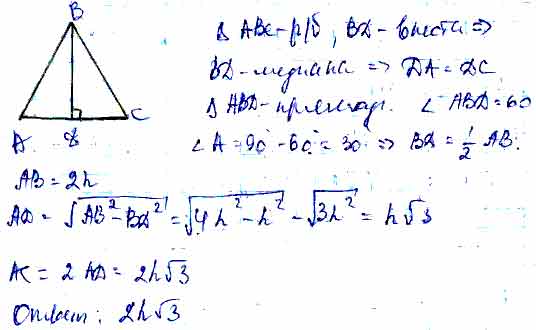 B
Δ ABC - р/б, BD - высота =>
BD - медиана => DA = DC
Δ ABD - прямоуг. ∠ ABD = 60
∠ A = 90° - 60° = 30° => BD = 1/2 AB.
A D C
AB = 2h
AD = √(AB² - BD²) = √(4h² - h²) - √(3h²) = h√3
AC = 2 AD = 2h√3
Ответ: 2h√3